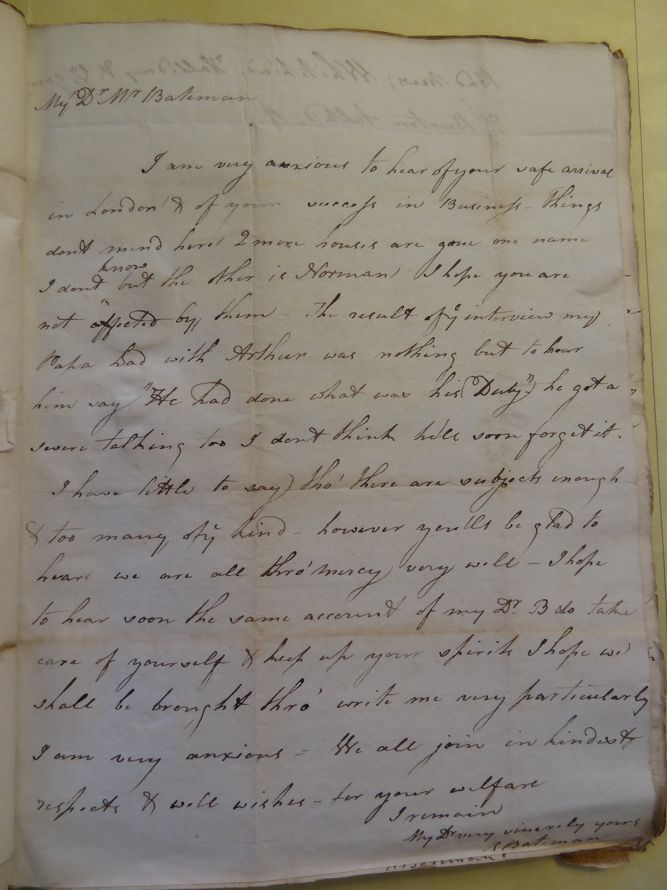 My Dr Mr Bateman
I am very anxious to hear of your safe arrival
in London & of your success in Business - things
dont mend here 2 more houses are gone one name
I dont know but the other is Norman I hope you are
not affected by them - The result of ye interview my
Papa had with Arthur was nothing but to hear
him say "He had done what was his (Duty") he got a
severe talking too I dont think he'll soon forget it.
I have little to say tho' there are subjects enough
& too many of ye kind - however you'll be glad to
hear we are all thro' mercy very well - I hope
to hear soon the same account of my Dr B do take
care of yourself & keep up your spirits I hope we
shall be brought thro' write me very particularly
I am very anxious = We all join in kindest
respects & well wishes - for your welfare
I remain
My Dr very sincerely yours
R Bateman